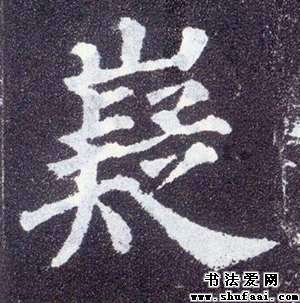 嶷
书法爱网
www.shufaai.com